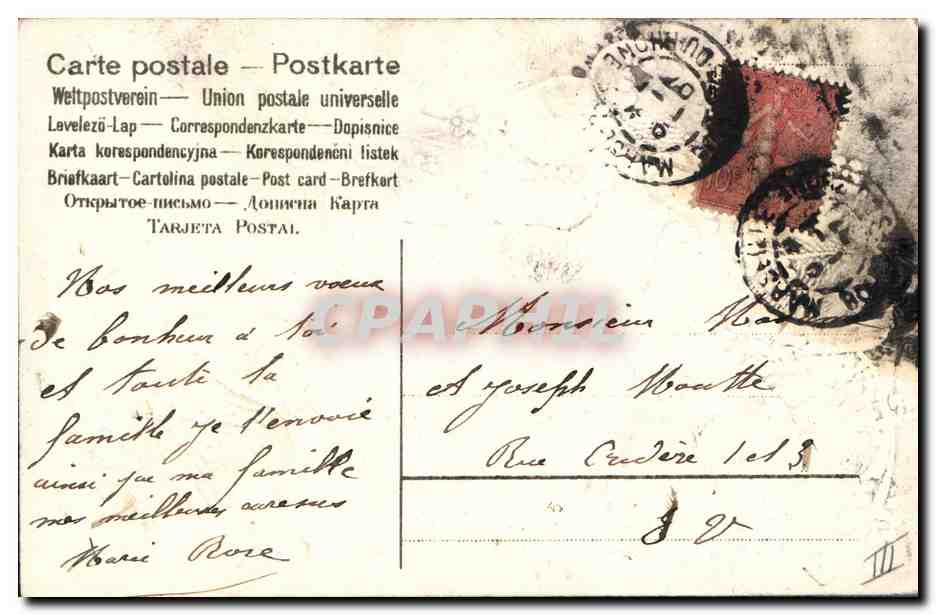 Carte postale — Postkarte
Weltpostverein — Union postale universelle
Levelező-Lap — Correspondenzkarte — Dopisnice
Karta korespondencyjna — Korespondenční listek
Briefkaart — Cartolina postale — Post card — Brefkort
Открытое-письмо — Дописна Карта
TARJETA POSTAL
Nos meilleurs voeux
de bonheur à toi
et toute ta
famille je t'envoie
ainsi que ma famille
mes meilleures caresses
Marie Rose
CPAPHIL
Monsieur
et Joseph Moutte
Rue Crudère 1 et 3
E V
III
10